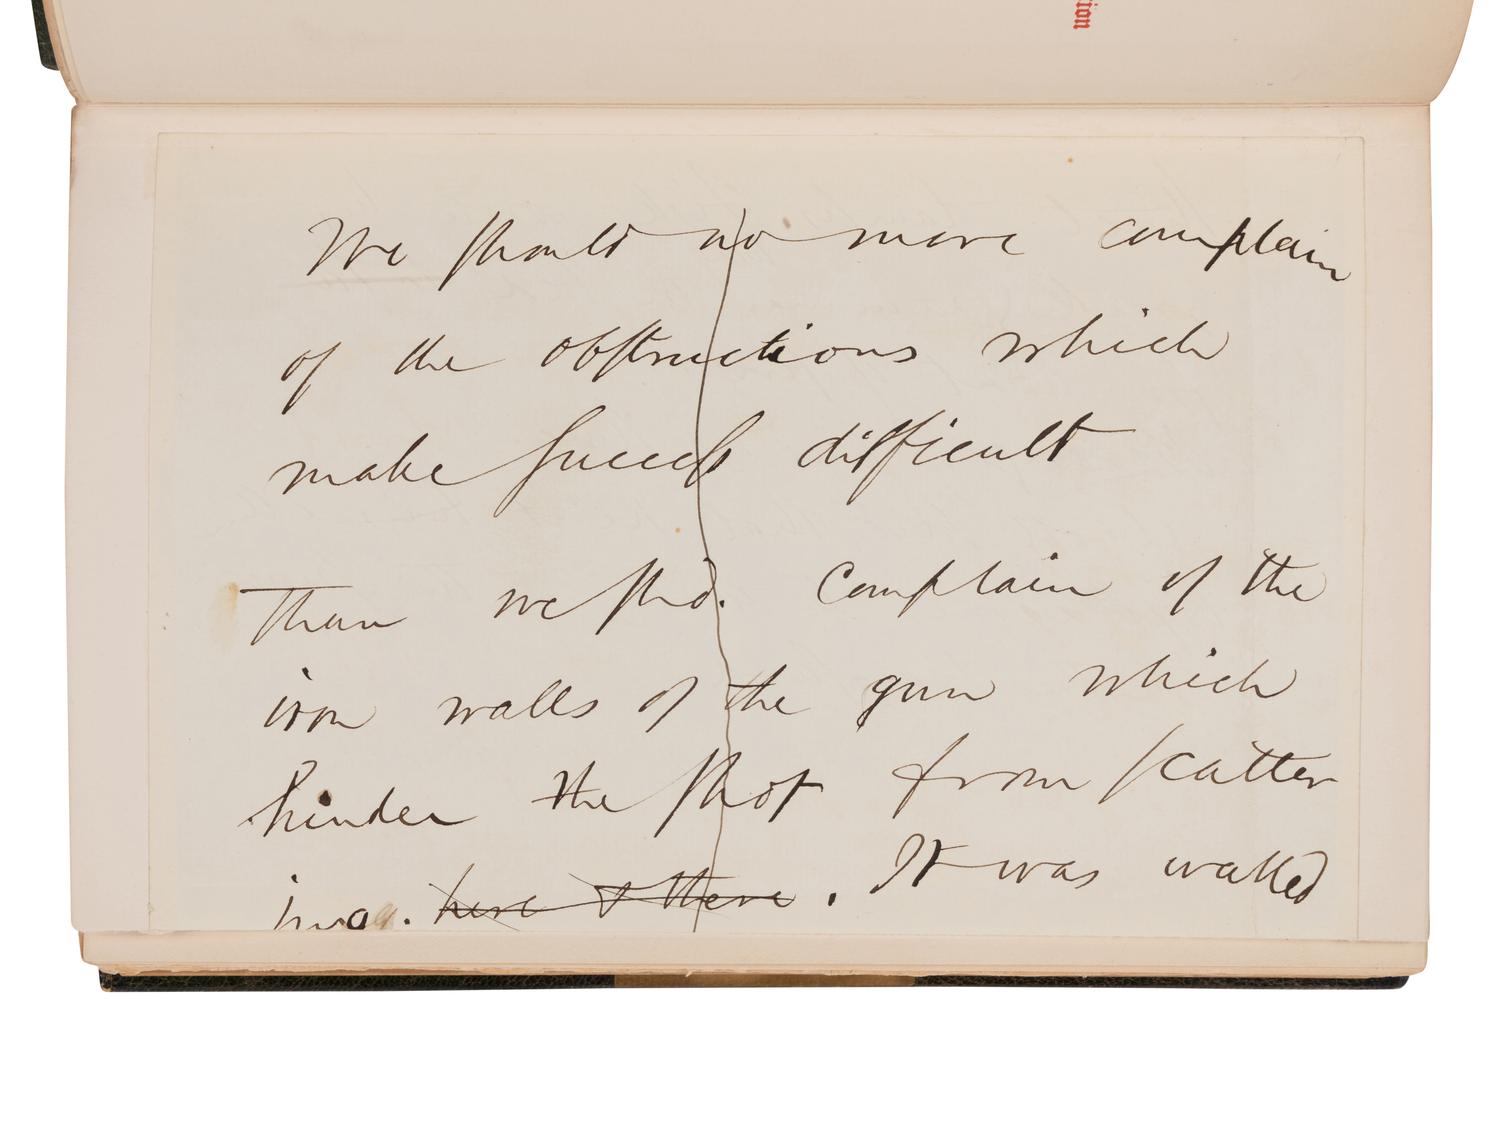 tion
We should no more complain
of the obstructions which
make success difficult
Than we shd. complain of the
iron walls of the gun which
hinder the shot from scatter
ing. here & there . It was walled